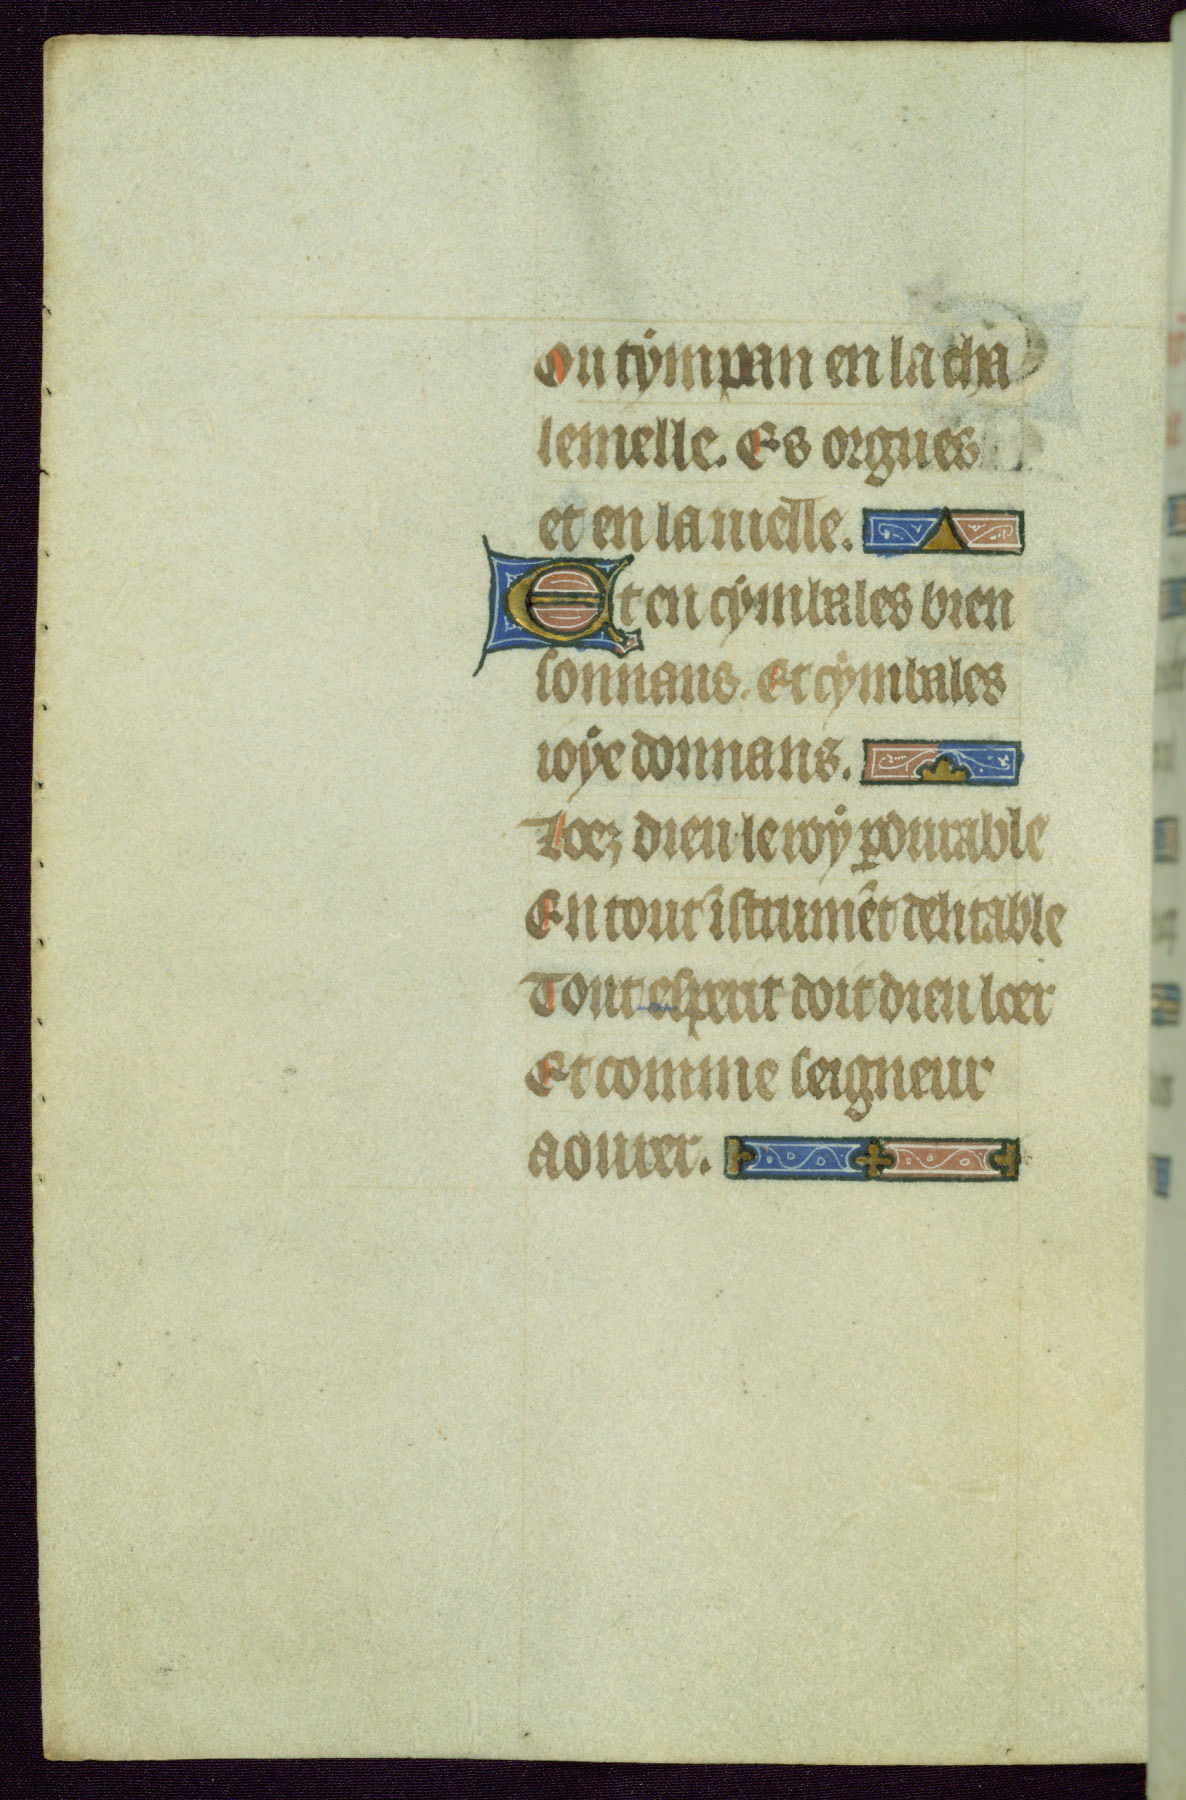 Ou tympan en la cha
lemelle. Es orgues
et en la uielle.
Et en cymbales bien
sonnans. Et cymbales
ioye donnans.
Loez dieu le roy ꝑdurable
En tout ĩstrumẽt delitable
Tout esperit doit dieu loer
Et comme seigneur
aourer.